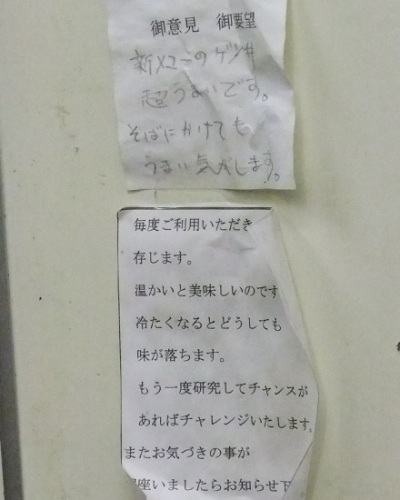 御意見 御要望
新メニューのゲソ丼
超うまいです。
そばにかけても
うまい気がします。
毎度ご利用いただき
存じます。
温かいと美味しいのです
冷たくなるとどうしても
味が落ちます。
もう一度研究してチャンスが
あればチャレンジいたします。
またお気づきの事が
座いましたらお知らせ下